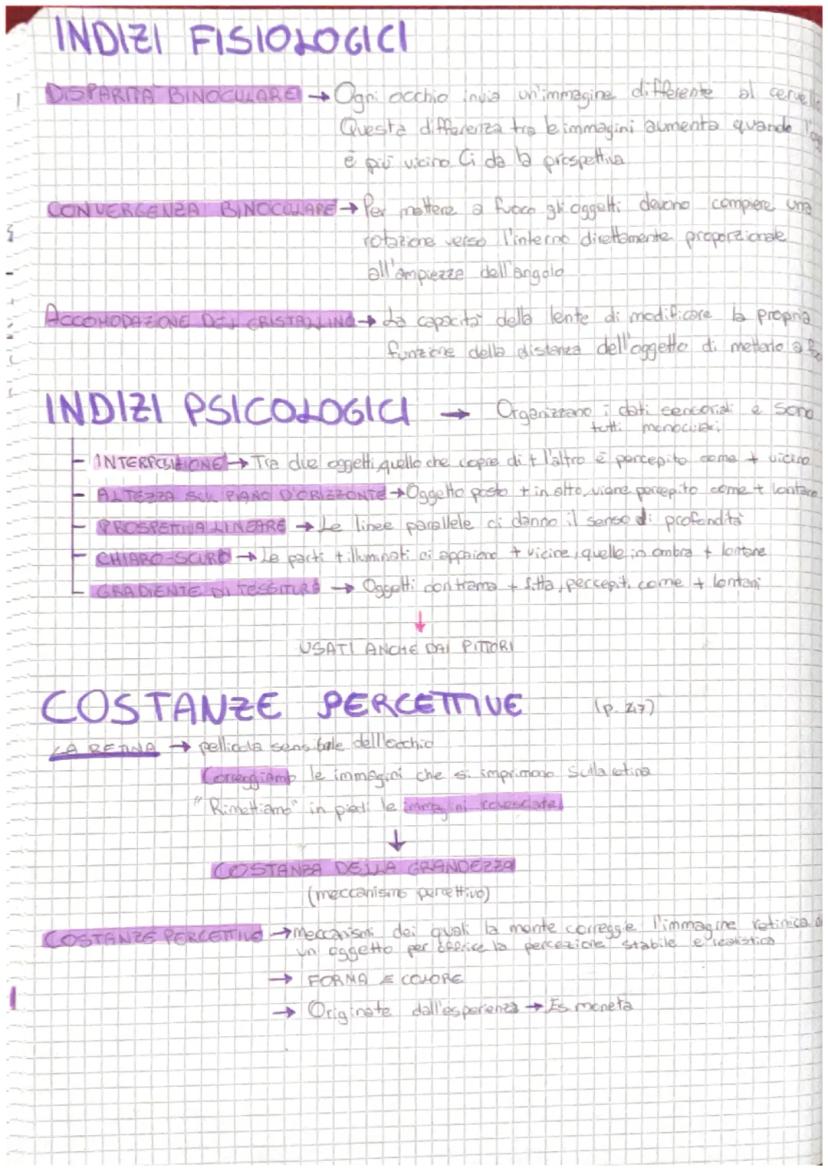 INDIZI FISIOLOGICI
DISPARITÀ BINOCULARE → Ogni occhio invia un'immagine differente al
Questa differenza tra le immagini aumenta quando
è più vicino Ci da la prospettiva
CONVERGENZA BINOCULARE → Per mettere a fuoco gli oggetti devono compiere una
rotazione verso l'interno direttamente proporzionale
all'ampiezza dell'angolo
ACCOMODAZIONE DEL CRISTALLINO → La capacità della lente di modificare la propria
funzione della distanza dell'oggetto di metterlo a
INDIZI PSICOLOGICI → Organizzano i dati sensoriali e sono
tutti monoculari
INTERPOSIZIONE → Tra due oggetti, quello che copre di + l'altro è percepito come + vicino
ALTEZZA SUL PIANO D'ORIZZONTE → Oggetto posto + in alto, viene percepito come + lontano
PROSPETTIVA LINEARE → Le linee parallele ci danno il senso di profondità
CHIARO-SCURO → Le parti + illuminati ci appaiono + vicine, quelle in ombra + lontane
GRADIENTE DI TESSITURA → Oggetti con trama + fitta, percepiti come + lontani
↓
USATI ANCHE DAI PITTORI
COSTANZE PERCETTIVE (p. 247)
LA RETINA → pellicola sensibile dell'occhio
Correggiamo le immagini che si imprimono sulla retina
"Rimettiamo" in piedi le immagini rovesciate
↓
COSTANZA DELLA GRANDEZZA
(meccanismo percettivo)
COSTANZE PERCETTIVE → meccanismi dei quali la mente corregge l'immagine retinica di
un oggetto per offrice la percezione stabile e realistica
→ FORMA E COLORE
→ Originate dall'esperienza → Es moneta